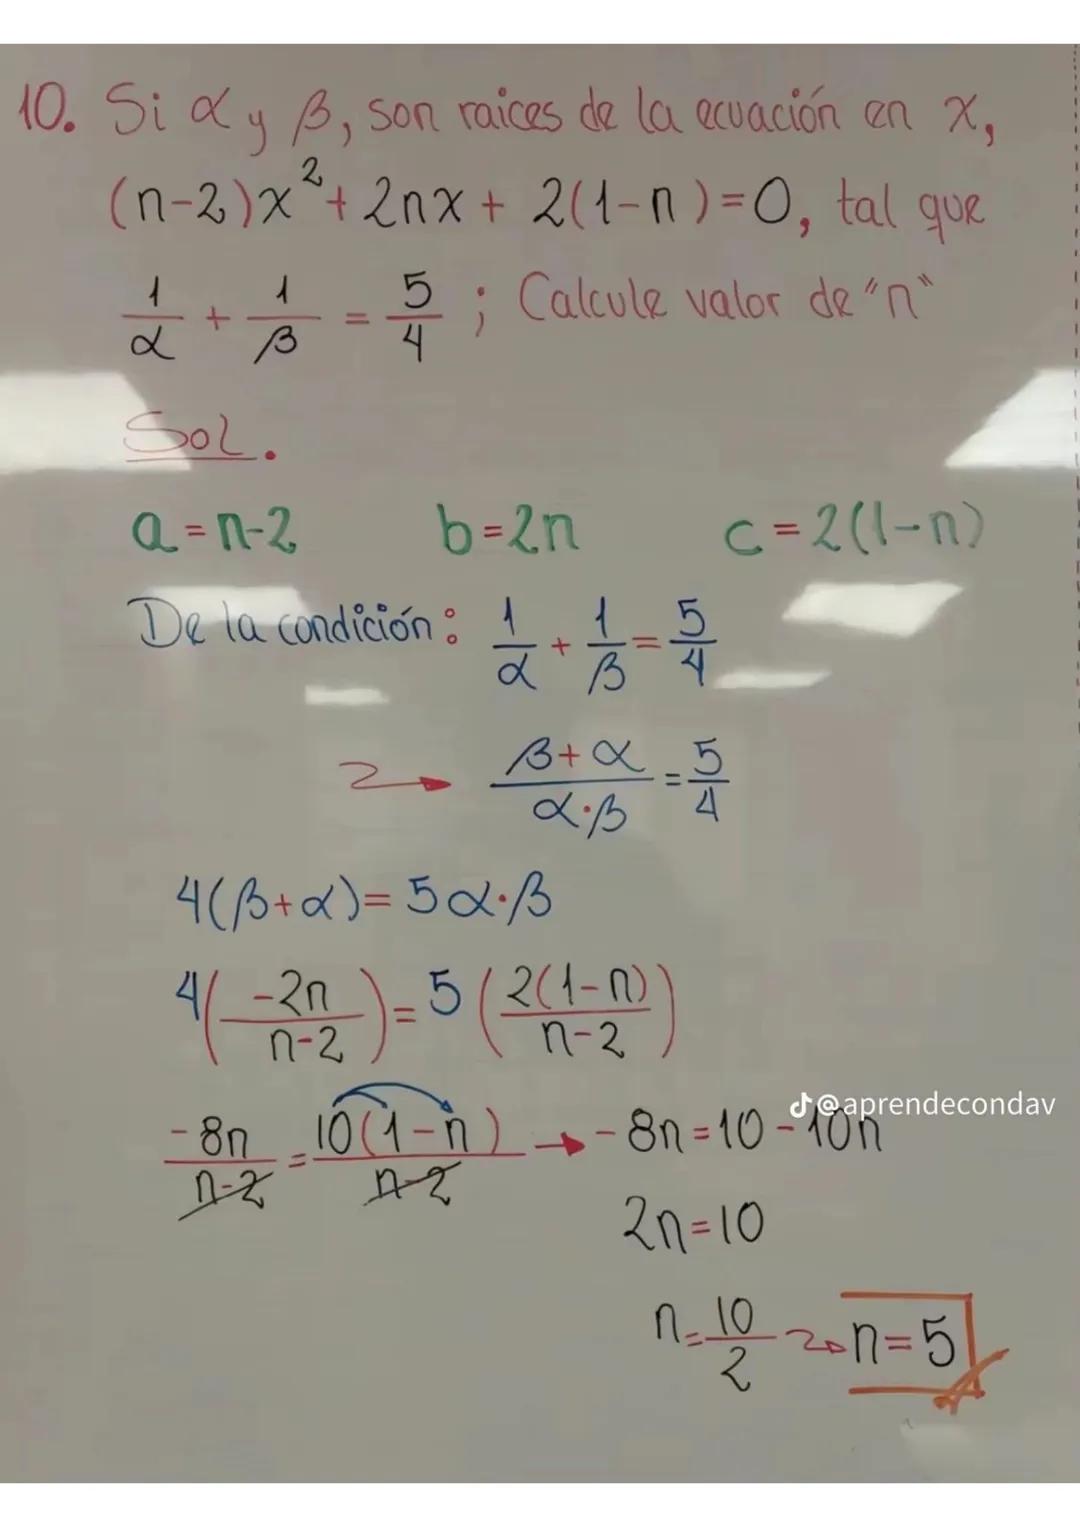 10. Si α y β, son raices de la ecuación en x,
(n-2)x² + 2nx + 2(1-n) = 0, tal que
1/α + 1/β = 5/4 ; Calcule valor de "n"
Sol.
a = n-2 b = 2n c = 2(1-n)
De la condición: 1/α + 1/β = 5/4
(β+α)/(α·β) = 5/4
4(β+α) = 5α·β
4(-2n/(n-2)) = 5(2(1-n)/(n-2))
@aprendecondav
-8n/(n-2) = 10(1-n)/(n-2) → -8n = 10 - 10n
2n = 10
n = 10/2 → n = 5